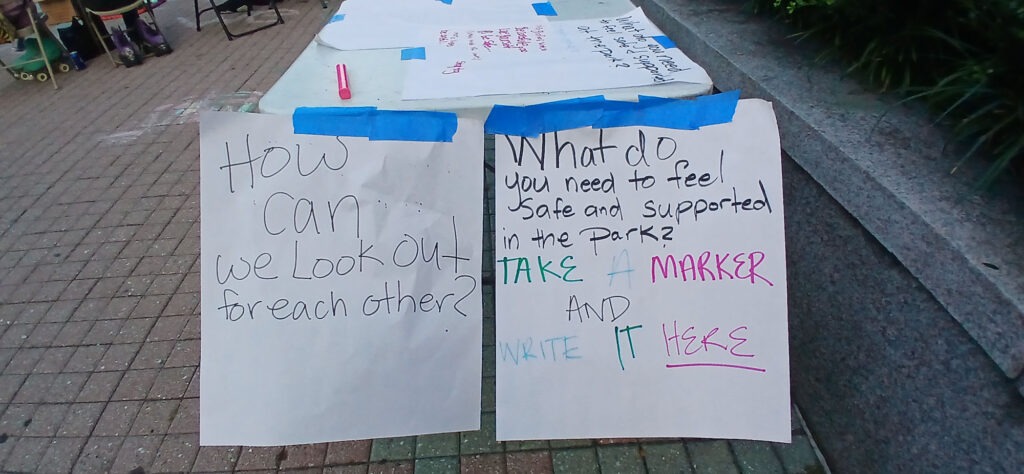 How
can
we Look out
for each other?
What do
you need to feel
safe and supported
in the PARK?
TAKE A MARKER
AND
WRITE IT HERE
What do you need
to feel safe & supported
in the park?